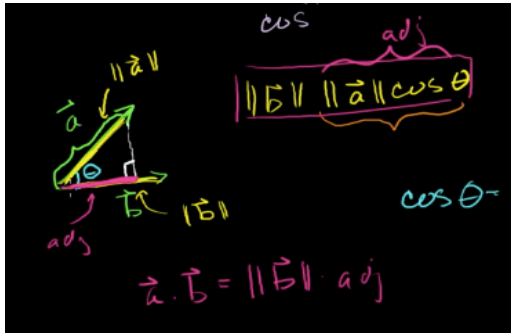 cos
adj
‖b⃗‖ ‖a⃗‖ cos θ
‖a⃗‖
a⃗
θ
b⃗
‖b⃗‖
adj
cos θ =
a⃗ · b⃗ = ‖b⃗‖ · adj